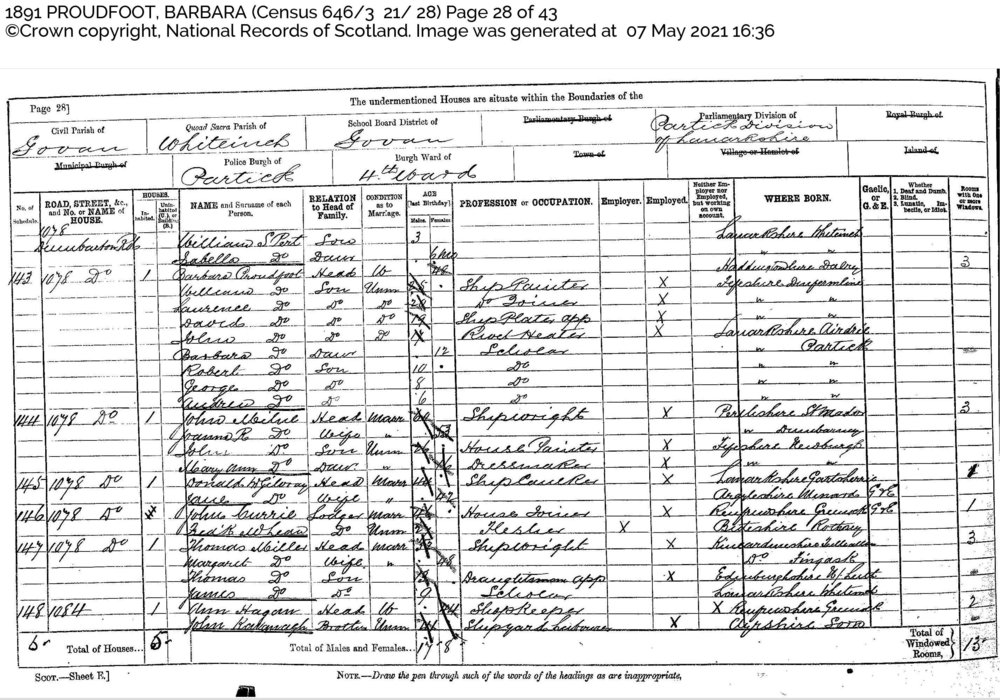 1891 PROUDFOOT, BARBARA (Census 646/3 21/ 28) Page 28 of 43
©Crown copyright, National Records of Scotland. Image was generated at 07 May 2021 16:36
Page 28] The undermentioned Houses are situate within the Boundaries of the
Civil Parish of Quoad Sacra Parish of School Board District of Parliamentary Burgh of Parliamentary Division of Royal Burgh of
Govan Whiteinch Govan Partick Division of Lanarkshire
Municipal Burgh of Police Burgh of Burgh Ward of Town of Village or Hamlet of Island of
Partick 4th Ward
No. of Schedule. ROAD, STREET, &c., and No. or NAME of HOUSE. HOUSES. Inhabited. Uninhabited (U.), or Building (B.) NAME and Surname of each Person. RELATION to Head of Family. CONDITION as to Marriage. AGE [last Birthday]. Males. Females. PROFESSION or OCCUPATION. Employer. Employed. Neither Employer nor Employed, but working on own account. WHERE BORN. Gaelic, or G. & E. Whether 1. Deaf and Dumb. 2. Blind. 3. Lunatic, Imbecile, or Idiot. Rooms with One or more Windows.
1078 Dumbarton Rd William S Port Son 3 Lanarkshire Whiteinch
Isabella Do Daur 6 mo " "
143 1078 Do 1 Barbara Proudfoot Head W 48 Haddingtonshire 3
William Do Son Unm Ship Painter X Fifeshire Dunfermline
Laurence Do Do Do Do Joiner X " "
David Do Do Do 19 Ship Plater app X " "
John Do Do Do Rivet Heater X Lanarkshire Airdrie
Barbara Do Daur 12 Scholar " Partick
Robert Do Son 10 Do " "
George Do Do 8 Do " "
Andrew Do Do 6 Do " "
144 1078 Do 1 John Milne Head Marr Shipwright X Perthshire St Madoes 3
Joanna R Do Wife " 53 " Dunbarney
John Do Son Unm House Painter X Fifeshire Newburgh
Mary Ann Do Daur " Dressmaker X " "
145 1078 Do 1 Donald McGilvray Head Marr Ship Caulker X Lanarkshire Gartsherrie 1
Jane Do Wife " 42 Argyleshire Minard G&E
146 1078 Do John Currie Lodger Marr House Joiner X Renfrewshire Greenock G&E 1
Fredk McLean Do Unm Flesher X Buteshire Rothesay
147 1078 Do 1 Thomas Miller Head Marr Shipwright X Kincardineshire 3
Margaret Do Wife " 48 Do Fingask
Thomas Do Son Draughtsman app X Edinburghshire N/Leith
James Do Do 9 Scholar Lanarkshire Whiteinch
148 1084 1 Ann Hagan Head W 74 Shopkeeper X Renfrewshire Greenock 2
John Kavanagh Brother Unm Shipyard labourer X Ayrshire Sorn
5 Total of Houses... 5 Total of Males and Females... 17 8 Total of Windowed Rooms, 13
SCOT.—Sheet E.] NOTE.—Draw the pen through such of the words of the headings as are inappropriate,